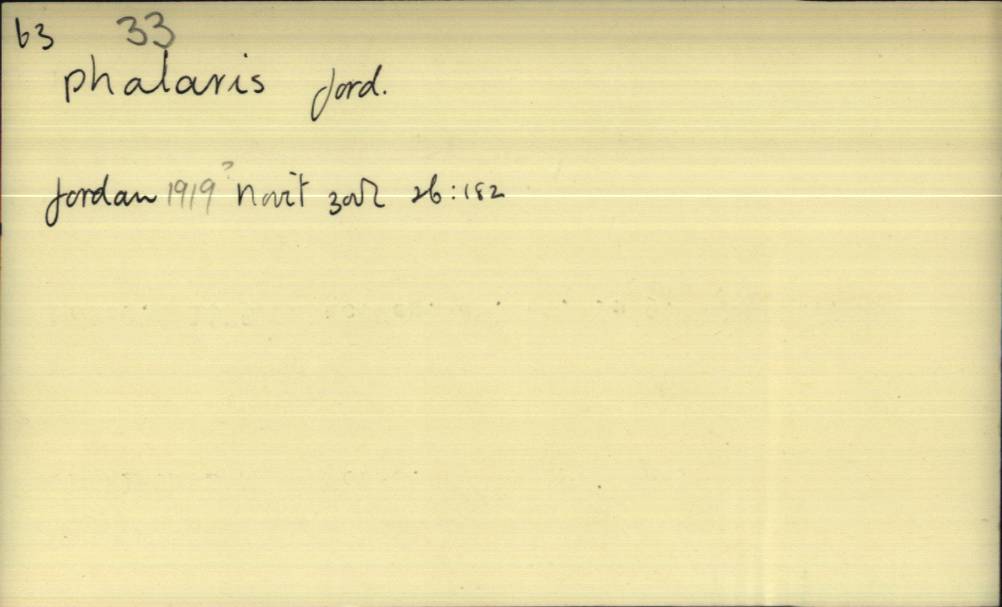 63 33
phalaris Jord.
Jordan 1919? Novit zool 26:182